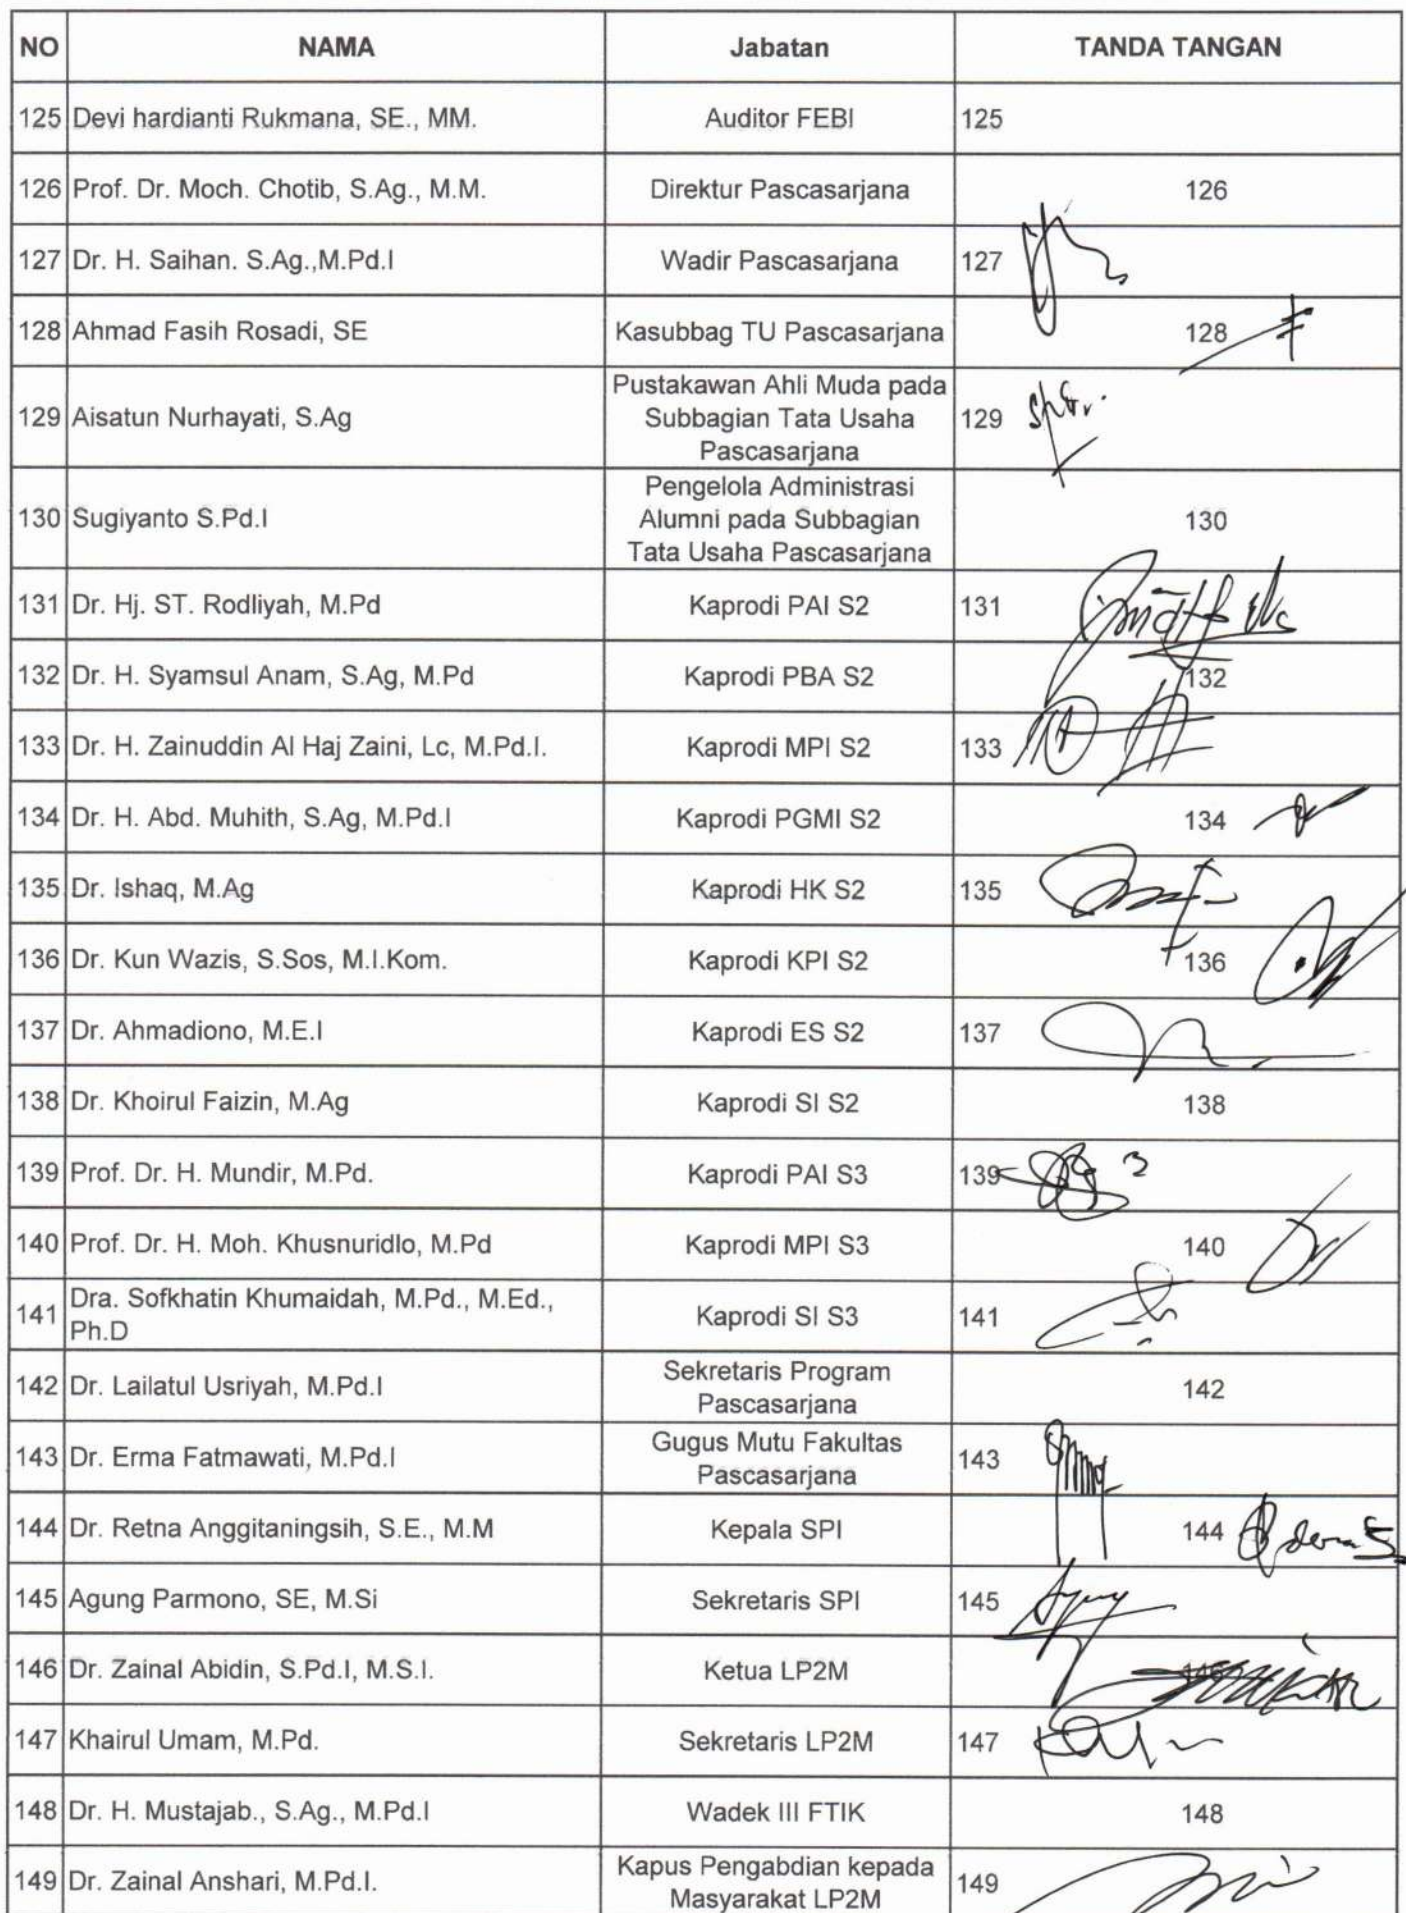 NO NAMA Jabatan TANDA TANGAN
125 Devi hardianti Rukmana, SE., MM. Auditor FEBI 125
126 Prof. Dr. Moch. Chotib, S.Ag., M.M. Direktur Pascasarjana 126
127 Dr. H. Saihan. S.Ag.,M.Pd.I Wadir Pascasarjana 127
128 Ahmad Fasih Rosadi, SE Kasubbag TU Pascasarjana 128
129 Aisatun Nurhayati, S.Ag Pustakawan Ahli Muda pada
Subbagian Tata Usaha
Pascasarjana 129
130 Sugiyanto S.Pd.I Pengelola Administrasi
Alumni pada Subbagian
Tata Usaha Pascasarjana 130
131 Dr. Hj. ST. Rodliyah, M.Pd Kaprodi PAI S2 131
132 Dr. H. Syamsul Anam, S.Ag, M.Pd Kaprodi PBA S2 132
133 Dr. H. Zainuddin Al Haj Zaini, Lc, M.Pd.I. Kaprodi MPI S2 133
134 Dr. H. Abd. Muhith, S.Ag, M.Pd.I Kaprodi PGMI S2 134
135 Dr. Ishaq, M.Ag Kaprodi HK S2 135
136 Dr. Kun Wazis, S.Sos, M.I.Kom. Kaprodi KPI S2 136
137 Dr. Ahmadiono, M.E.I Kaprodi ES S2 137
138 Dr. Khoirul Faizin, M.Ag Kaprodi SI S2 138
139 Prof. Dr. H. Mundir, M.Pd. Kaprodi PAI S3 139
140 Prof. Dr. H. Moh. Khusnuridlo, M.Pd Kaprodi MPI S3 140
141 Dra. Sofkhatin Khumaidah, M.Pd., M.Ed.,
Ph.D Kaprodi SI S3 141
142 Dr. Lailatul Usriyah, M.Pd.I Sekretaris Program
Pascasarjana 142
143 Dr. Erma Fatmawati, M.Pd.I Gugus Mutu Fakultas
Pascasarjana 143
144 Dr. Retna Anggitaningsih, S.E., M.M Kepala SPI 144
145 Agung Parmono, SE, M.Si Sekretaris SPI 145
146 Dr. Zainal Abidin, S.Pd.I, M.S.I. Ketua LP2M 146
147 Khairul Umam, M.Pd. Sekretaris LP2M 147
148 Dr. H. Mustajab., S.Ag., M.Pd.I Wadek III FTIK 148
149 Dr. Zainal Anshari, M.Pd.I. Kapus Pengabdian kepada
Masyarakat LP2M 149